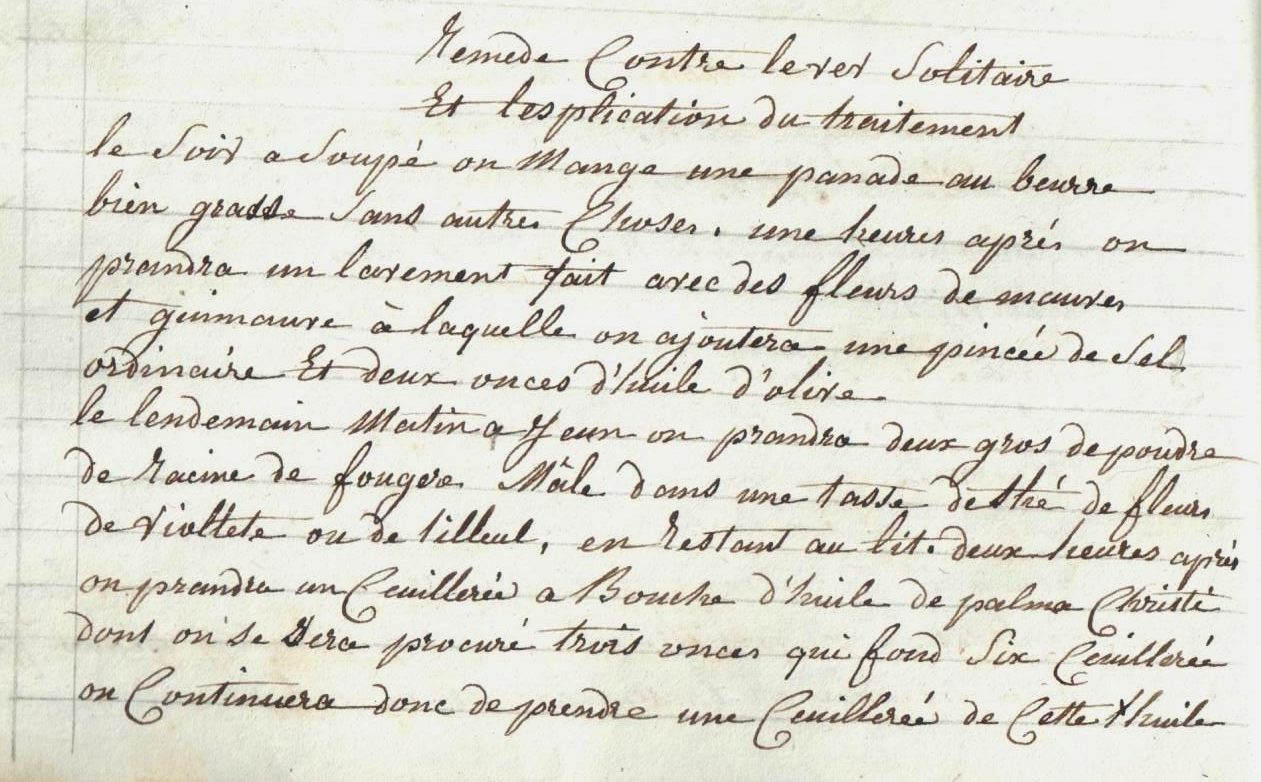 Remede Contre le ver Solitaire
Et lesplication du traitement
le Soir a Soupé on Mange une panade au beurre
bien grasse Sans autres Choses. une heures aprés on
prandra un lavement fait avec des fleurs de mauves
et guimauve à laquelle on ajoutera une pincée de Sel
ordinaire Et deux onces d'huile d'olive.
le lendemain Matin a Jeun on prandra deux gros de poudre
de racine de fougere Mâle dans une tasse de thé de fleurs
de violtete ou de tilleul, en restant au lit. deux heures aprés
on prandra un Ceuillereé a Bouche d'huile de palma Christi
dont on se sera procuré trois onces qui fond Six Ceuillereé
on Continuera donc de prendre une Ceuillereé de Cette huile